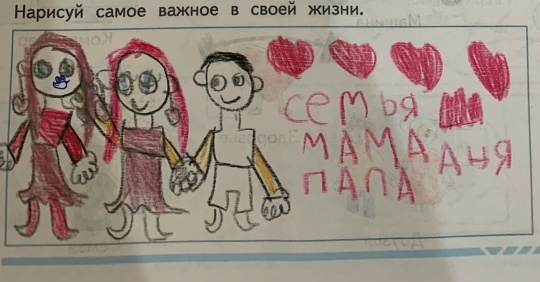 Нарисуй самое важное в своей жизни.
семья
МАМА АНЯ
ПАПА